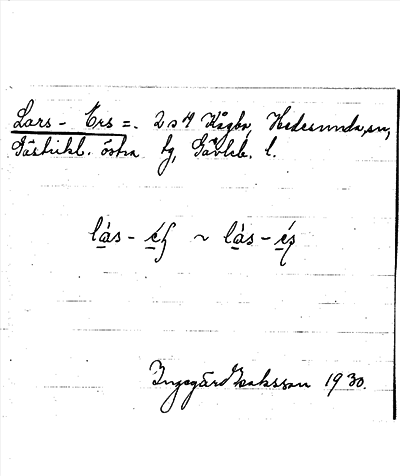 Lars-Ers =. 2 s 4 Kågbo, Hedesunda, sn,
Gästrikl. östra tg, Gävleb. l.
lás - éʃ ~ lás - éş
Ingegärd Isaksson 1930.